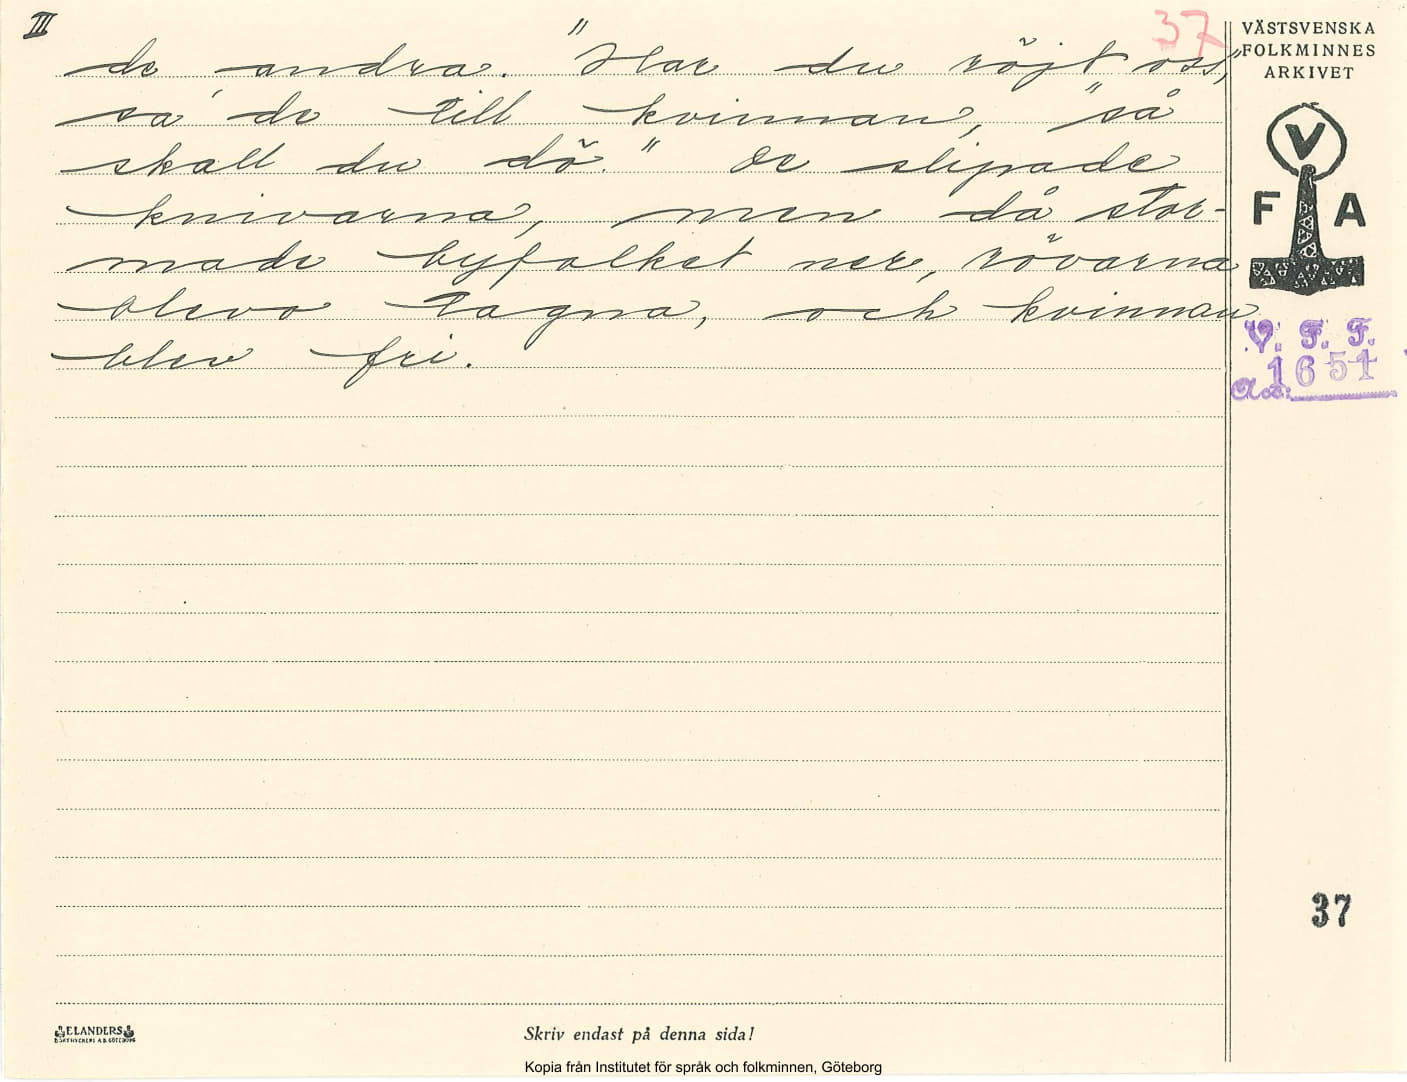 III
37
de andra. "Har du röjt oss,"
sa' de till kvinnan, "så
skall du dö." De slipade
knivarna, men då stor-
made byfolket ner, rövarna
blevo tagna, och kvinnan
blev fri.
VÄSTSVENSKA
FOLKMINNES
ARKIVET
V
F A
V. F. F.
1651
Acc:
37
ELANDERS
BOKTRYCKERI A.B. GÖTEBORG
Skriv endast på denna sida!
Kopia från Institutet för språk och folkminnen, Göteborg